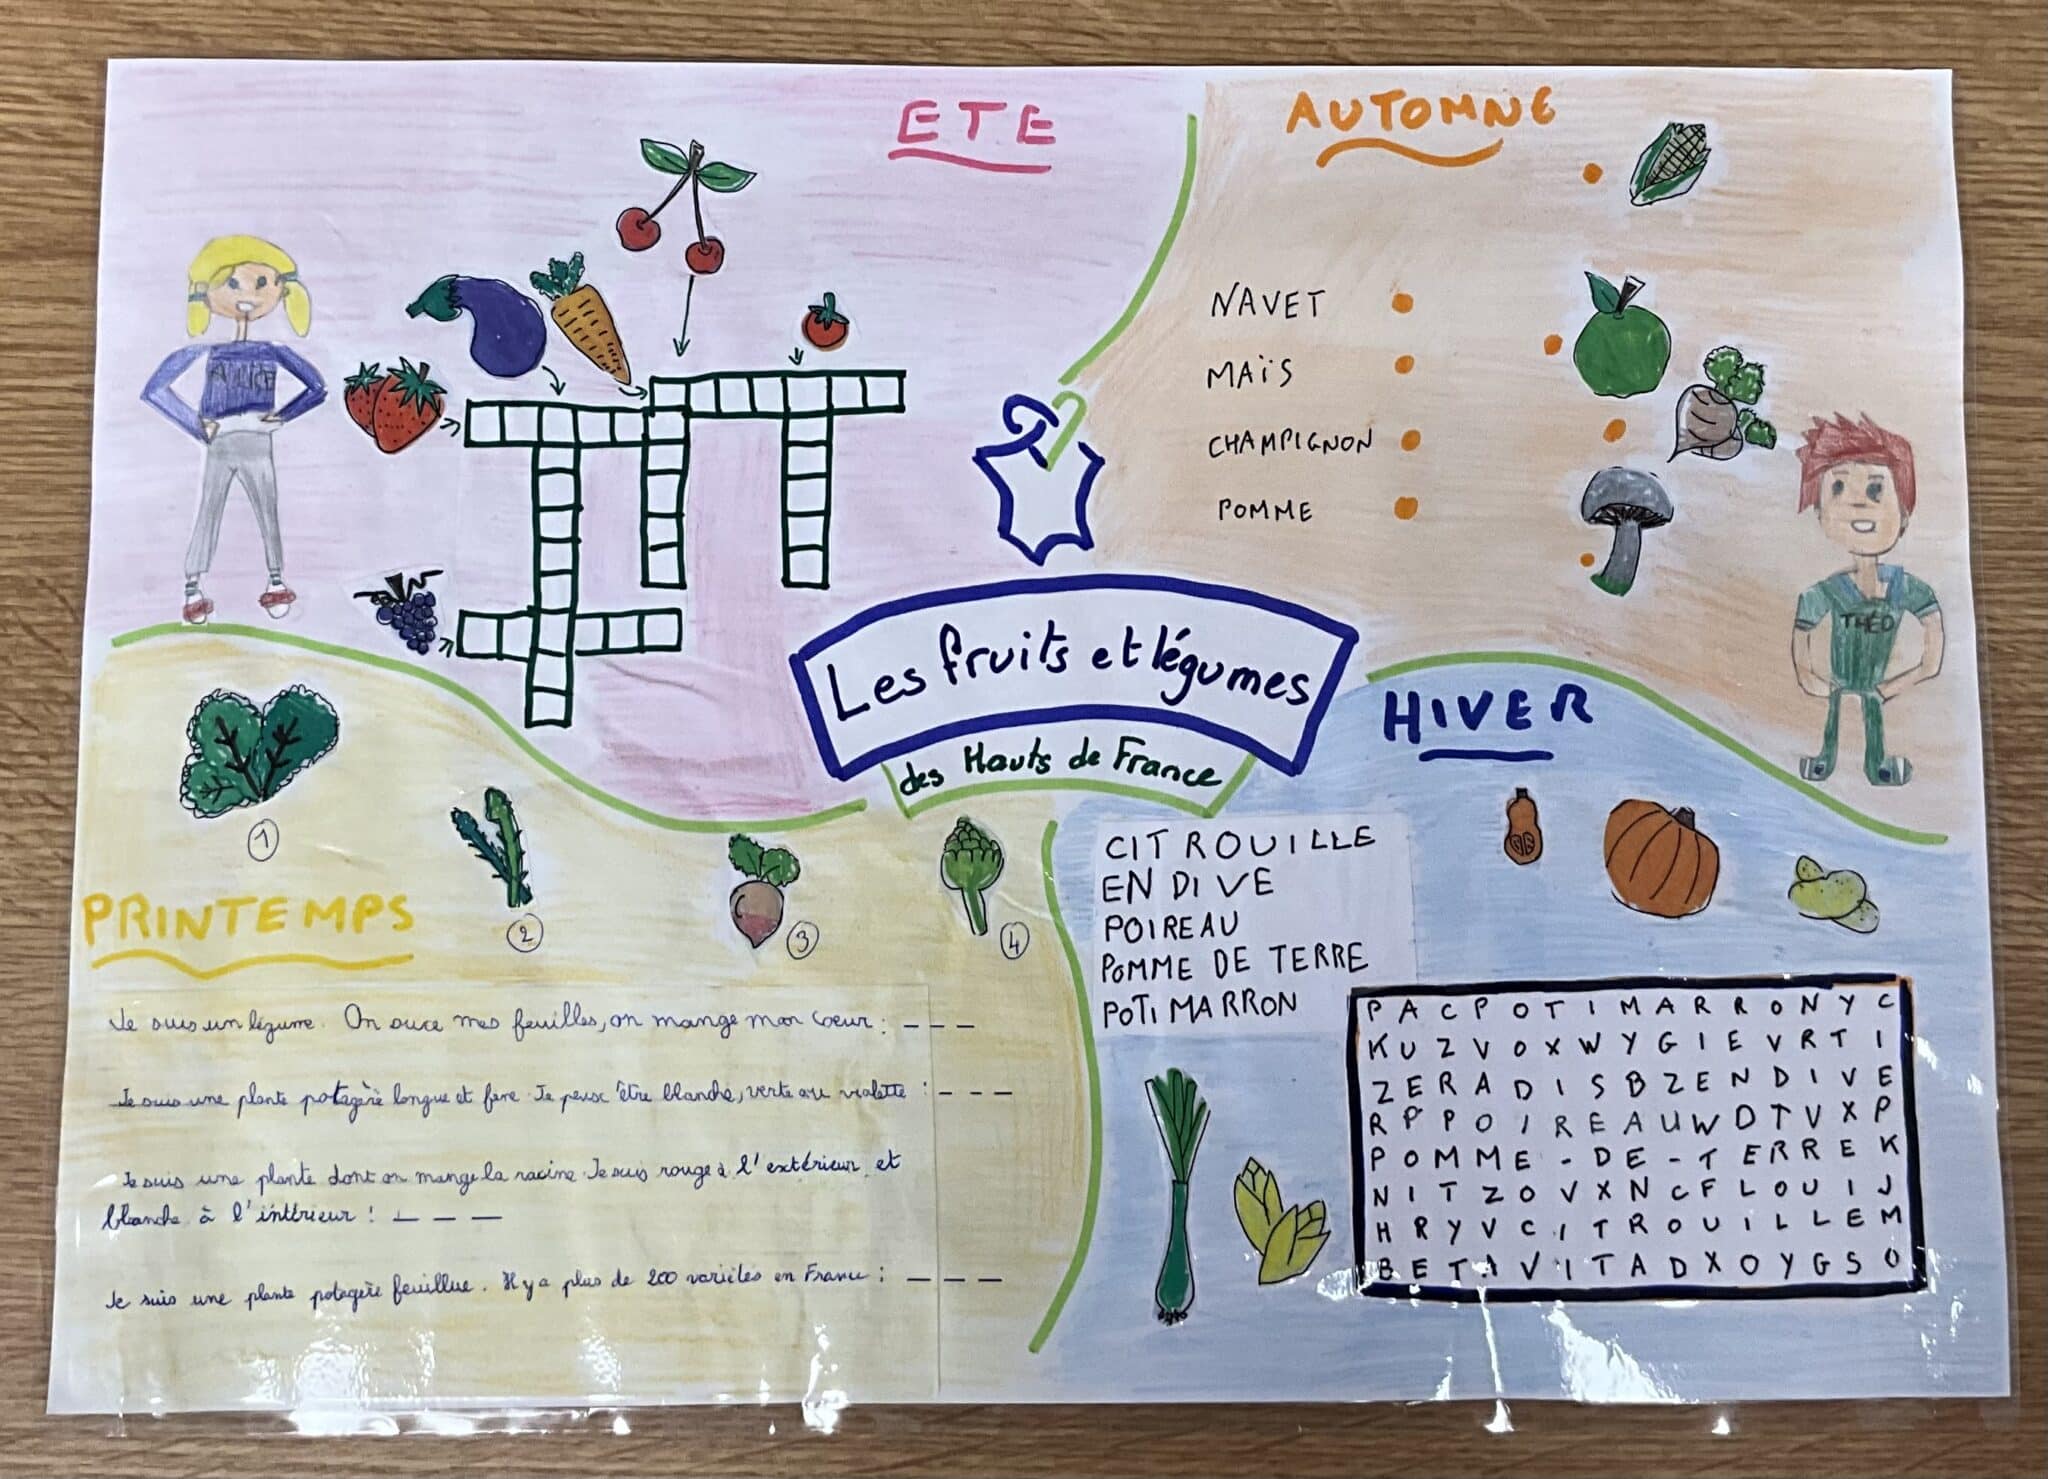 ETE
ALICE
AUTOMNE
NAVET
MAÏS
CHAMPIGNON
POMME
THÉO
Les fruits et légumes
des Hauts de France
PRINTEMPS
1
2
3
4
Je suis un légume. On suce mes feuilles, on mange mon cœur : ---
Je suis une plante potagère longue et fine. Je peux être blanche, verte ou violette : ---
Je suis une plante dont on mange la racine. Je suis rouge à l'extérieur et
blanche à l'intérieur : ---
Je suis une plante potagère feuillue. Il y a plus de 200 variétés en France : ---
HIVER
CITROUILLE
ENDIVE
POIREAU
POMME DE TERRE
POTIMARRON
P A C P O T I M A R R O N Y C
K U Z V O X W Y G I E V R T I
Z E R A D I S B Z E N D I V E
R P P O I R E A U W D T V X P
P O M M E - D E - T E R R E K
N I T Z O V X N C F L O U I J
H R Y V C I T R O U I L L E M
B E T A V I T A D X O Y G S O